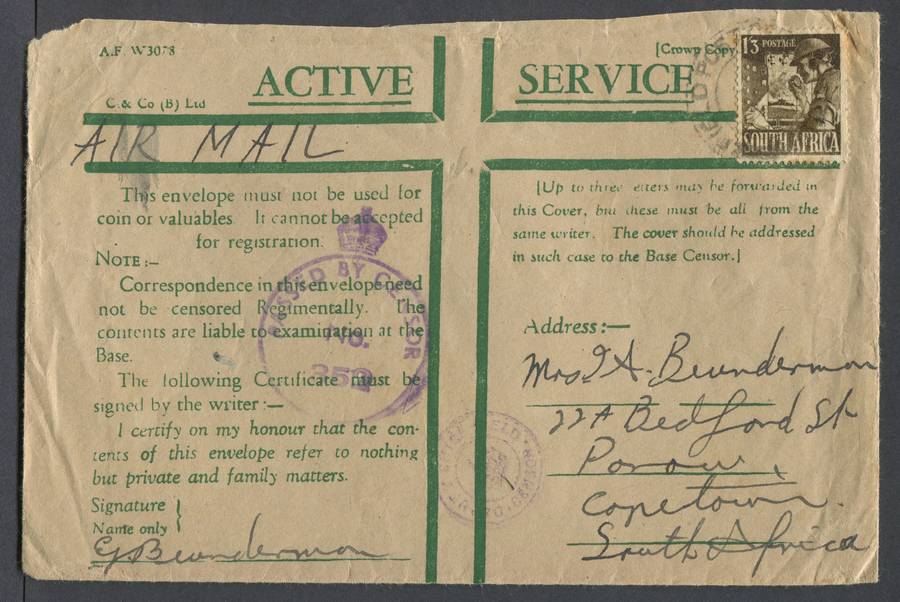 A.F. W3078
[Crown Copy
ACTIVE SERVICE
C. & Co (B) Ltd
1'3 POSTAGE
SOUTH AFRICA
AIR MAIL
This envelope must not be used for
coin or valuables It cannot be accepted
for registration.
NOTE:—
Correspondence in this envelope need
not be censored Regimentally. The
contents are liable to examination at the
Base.
The following Certificate must be
signed by the writer:—
I certify on my honour that the con-
tents of this envelope refer to nothing
but private and family matters.
Signature
Name only
Beunderman
PASSED BY CENSOR
No.
352
[Up to three etters may be forwarded in
this Cover, but these must be all from the
same writer. The cover should be addressed
in such case to the Base Censor.]
Address:—
Mrs. J. A. Beunderman
22A Bedford St
Parow,
Capetown.
South Africa